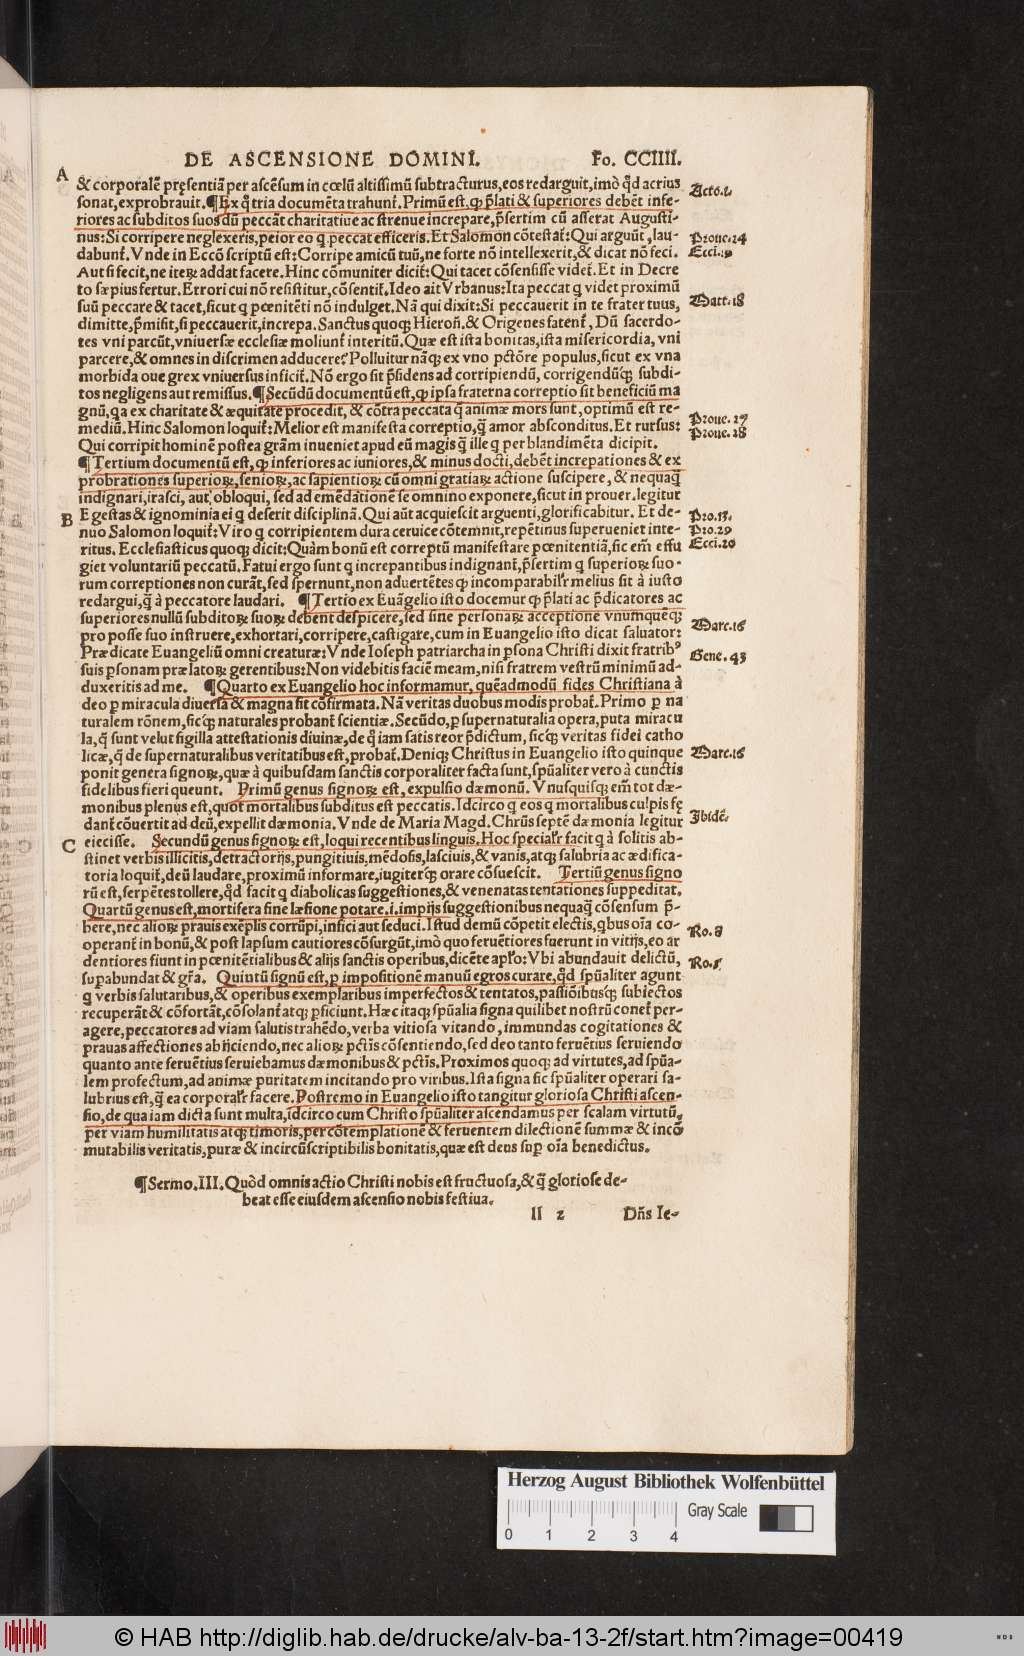 DE ASCENSIONE DOMINI. Fo. CCIIII.
A
& corporalē pręsentiā per ascēsum in cœlū altissimū subtracturus, eos redarguit, imò qd̄ acrius
Acto.1.
sonat, exprobrauit. ¶ Ex q̄ tria documēta trahunt᷑. Primū est, ꝙ p̄lati & superiores debēt infe-
riores ac subditos suos dū peccāt charitatiue ac strenue increpare, p̄sertim cū asserat Augusti-
nus: Si corripere neglexeris, peior eo q peccat efficeris. Et Salomon cōtestat᷑: Qui arguūt, lau-
Proue.24
dabunt᷑. Vnde in Eccō scriptū est: Corripe amicū tuū, ne forte nō intellexerit, & dicat nō feci.
Ecci.19
Aut si fecit, ne iteꝝ addat facere. Hinc cōmuniter dicit᷑: Qui tacet cōsensisse videt᷑. Et in Decre
to sæpius fertur. Errori cui nō resistitur, cōsentit᷑. Ideo ait Vrbanus: Ita peccat q videt proximū
suū peccare & tacet, sicut q pœnitēti nō indulget. Nā qui dixit: Si peccauerit in te frater tuus,
Matt.18
dimitte, p̄misit, si peccauerit, increpa. Sanctus quoqꝫ Hieroñ. & Origenes fatent᷑, Dū sacerdo-
tes vni parcūt, vniuersæ ecclesiæ moliunt᷑ interitū. Quæ est ista bonitas, ista misericordia, vni
parcere, & omnes in discrimen adducere? Polluitur nāqꝫ ex vno pctōre populus, sicut ex vna
morbida oue grex vniuersus inficit᷑. Nō ergo sit p̄sidens ad corripiendū, corrigendūqꝫ subdi-
tos negligens aut remissus. ¶ Secūdū documentū est, ꝙ ipsa fraterna correptio sit beneficiū ma
gnū, qa ex charitate & æquitate procedit, & cōtra peccata q̄ animæ mors sunt, optimū est re-
mediū. Hinc Salomon loquit᷑: Melior est manifesta correptio, q̄ amor absconditus. Et rursus:
Proue. 27
Qui corripit hominē postea grām inueniet apud eū magis q̄ ille q per blandimēta dicipit.
Proue. 28
¶ Tertium documentū est, ꝙ inferiores ac iuniores, & minus docti, debēt increpationes & ex
probrationes superioꝝ, senioꝝ, ac sapientioꝝ cū omni gratiaꝝ actione suscipere, & nequaq̄
indignari, irasci, aut obloqui, sed ad emēdationē se omnino exponere, sicut in prouer. legitur
B
Egestas & ignominia ei q deserit disciplinā. Qui aūt acquiescit arguenti, glorificabitur. Et de-
Pro.13.
nuo Salomon loquit᷑: Viro q corripientem dura ceruice cōtemnit, repētinus superueniet inte-
Pro.29
ritus. Ecclesiasticus quoqꝫ dicit: Quàm bonū est correptū manifestare pœnitentiā, sic em̄ effu
Ecci.20
giet voluntariū peccatū. Fatui ergo sunt q increpantibus indignant᷑, p̄sertim q superioꝝ suo-
rum correptiones non curāt, sed spernunt, non aduertētes ꝙ incomparabilr̄ melius sit à iusto
redargui, q̄ à peccatore laudari. ¶ Tertio ex Euāgelio isto docemur ꝙ p̄lati ac p̄dicatores ac
superiores nullū subditoꝝ suoꝝ debent despicere, sed sine personaꝝ acceptione vnumquēqꝫ
pro posse suo instruere, exhortari, corripere, castigare, cum in Euangelio isto dicat saluator:
Marc.16
Prædicate Euangeliū omni creaturæ: Vnde Ioseph patriarcha in ꝑsona Christi dixit fratribꝰ
suis ꝑsonam prælatoꝝ gerentibus: Non videbitis faciē meam, nisi fratrem vestrū minimū ad-
Gene. 43
duxeritis ad me. ¶ Quarto ex Euangelio hoc informamur, quēadmodū fides Christiana à
deo ꝑ miracula diuersa & magna sit cōfirmata. Nā veritas duobus modis probat᷑. Primo ꝑ na
turalem rōnem, sicqꝫ naturales probant᷑ scientiæ. Secūdo, ꝑ supernaturalia opera, puta miracu
la, q̄ sunt velut sigilla attestationis diuinæ, de q̄ iam satis reor p̄dictum, sicqꝫ veritas fidei catho
licæ, q̄ de supernaturalibus veritatibus est, probat᷑. Deniqꝫ Christus in Euangelio isto quinque
Marc.16
ponit genera signoꝝ, quæ à quibusdam sanctis corporaliter facta sunt, sp̄ualiter vero à cunctis
fidelibus fieri queunt. Primū genus signoꝝ est, expulsio dæmonū. Vnusquisqꝫ em̄ tot dæ-
monibus plenus est, quot mortalibus subditus est peccatis. Idcirco q eos q mortalibus culpis sę
dant᷑ cōuertit ad deū, expellit dæmonia. Vnde de Maria Magd. Chrūs septē dæmonia legitur
Ibidē.
C
eiecisse. Secundū genus signoꝝ est, loqui recentibus linguis. Hoc specialr̄ facit q à solitis ab-
stinet verbis illicitis, detractorijs, pungitiuis, mēdosis, lasciuis, & vanis, atqꝫ salubria ac ædifica-
toria loquit᷑, deū laudare, proximū informare, iugiterqꝫ orare cōsuescit. Tertiū genus signo
rū est, serpētes tollere, qd̄ facit q diabolicas suggestiones, & venenatas tentationes suppeditat.
Quartū genus est, mortifera sine læsione potare. i. impijs suggestionibus nequaq̄ cōsensum p̄-
bere, nec alioꝝ prauis exēplis corrūpi, infici aut seduci. Istud demū cōpetit electis, qbus oīa co-
Ro. 8
operant᷑ in bonū, & post lapsum cautiores cōsurgūt, imò quo feruētiores fuerunt in vitijs, eo ar
dentiores fiunt in pœnitētialibus & alijs sanctis operibus, dicēte apl̄o: Vbi abundauit delictū,
Ro.5.
suꝑabundat & gr̄a. Quintū signū est, ꝑ impositionē manuū egros curare, qd̄ sp̄ualiter agunt
q verbis salutaribus, & operibus exemplaribus imperfectos & tentatos, passiōibusqꝫ subiectos
recuperāt & cōfortāt, cōsolant᷑ atqꝫ ꝑficiunt. Hæc itaqꝫ sp̄ualia signa quilibet nostrū conet᷑ per-
agere, peccatores ad viam salutis trahēdo, verba vitiosa vitando, immundas cogitationes &
prauas affectiones abijciendo, nec alioꝝ pctīs cōsentiendo, sed deo tanto feruētius seruiendo
quanto ante feruētius seruiebamus dæmonibus & pctīs. Proximos quoqꝫ ad virtutes, ad sp̄ua-
lem profectum, ad animæ puritatem incitando pro viribus. Ista signa sic sp̄ualiter operari sa-
lubrius est, q̄ ea corporalr̄ facere. Postremo in Euangelio isto tangitur gloriosa Christi ascen-
sio, de qua iam dicta sunt multa, idcirco cum Christo sp̄ualiter ascendamus per scalam virtutū,
per viam humilitatis atqꝫ timoris, per cōtemplationē & feruentem dilectionē summæ & incō
mutabilis veritatis, puræ & incircūscriptibilis bonitatis, quæ est deus suꝑ oīa benedictus.
¶ Sermo. III. Quòd omnis actio Christi nobis est fructuosa, & q̄ gloriose de-
beat esse eiusdem ascensio nobis festiua.
ll 2 Dn̄s Ie-
Herzog August Bibliothek Wolfenbüttel
Gray Scale
0 1 2 3 4
© HAB http://diglib.hab.de/drucke/alv-ba-13-2f/start.htm?image=00419